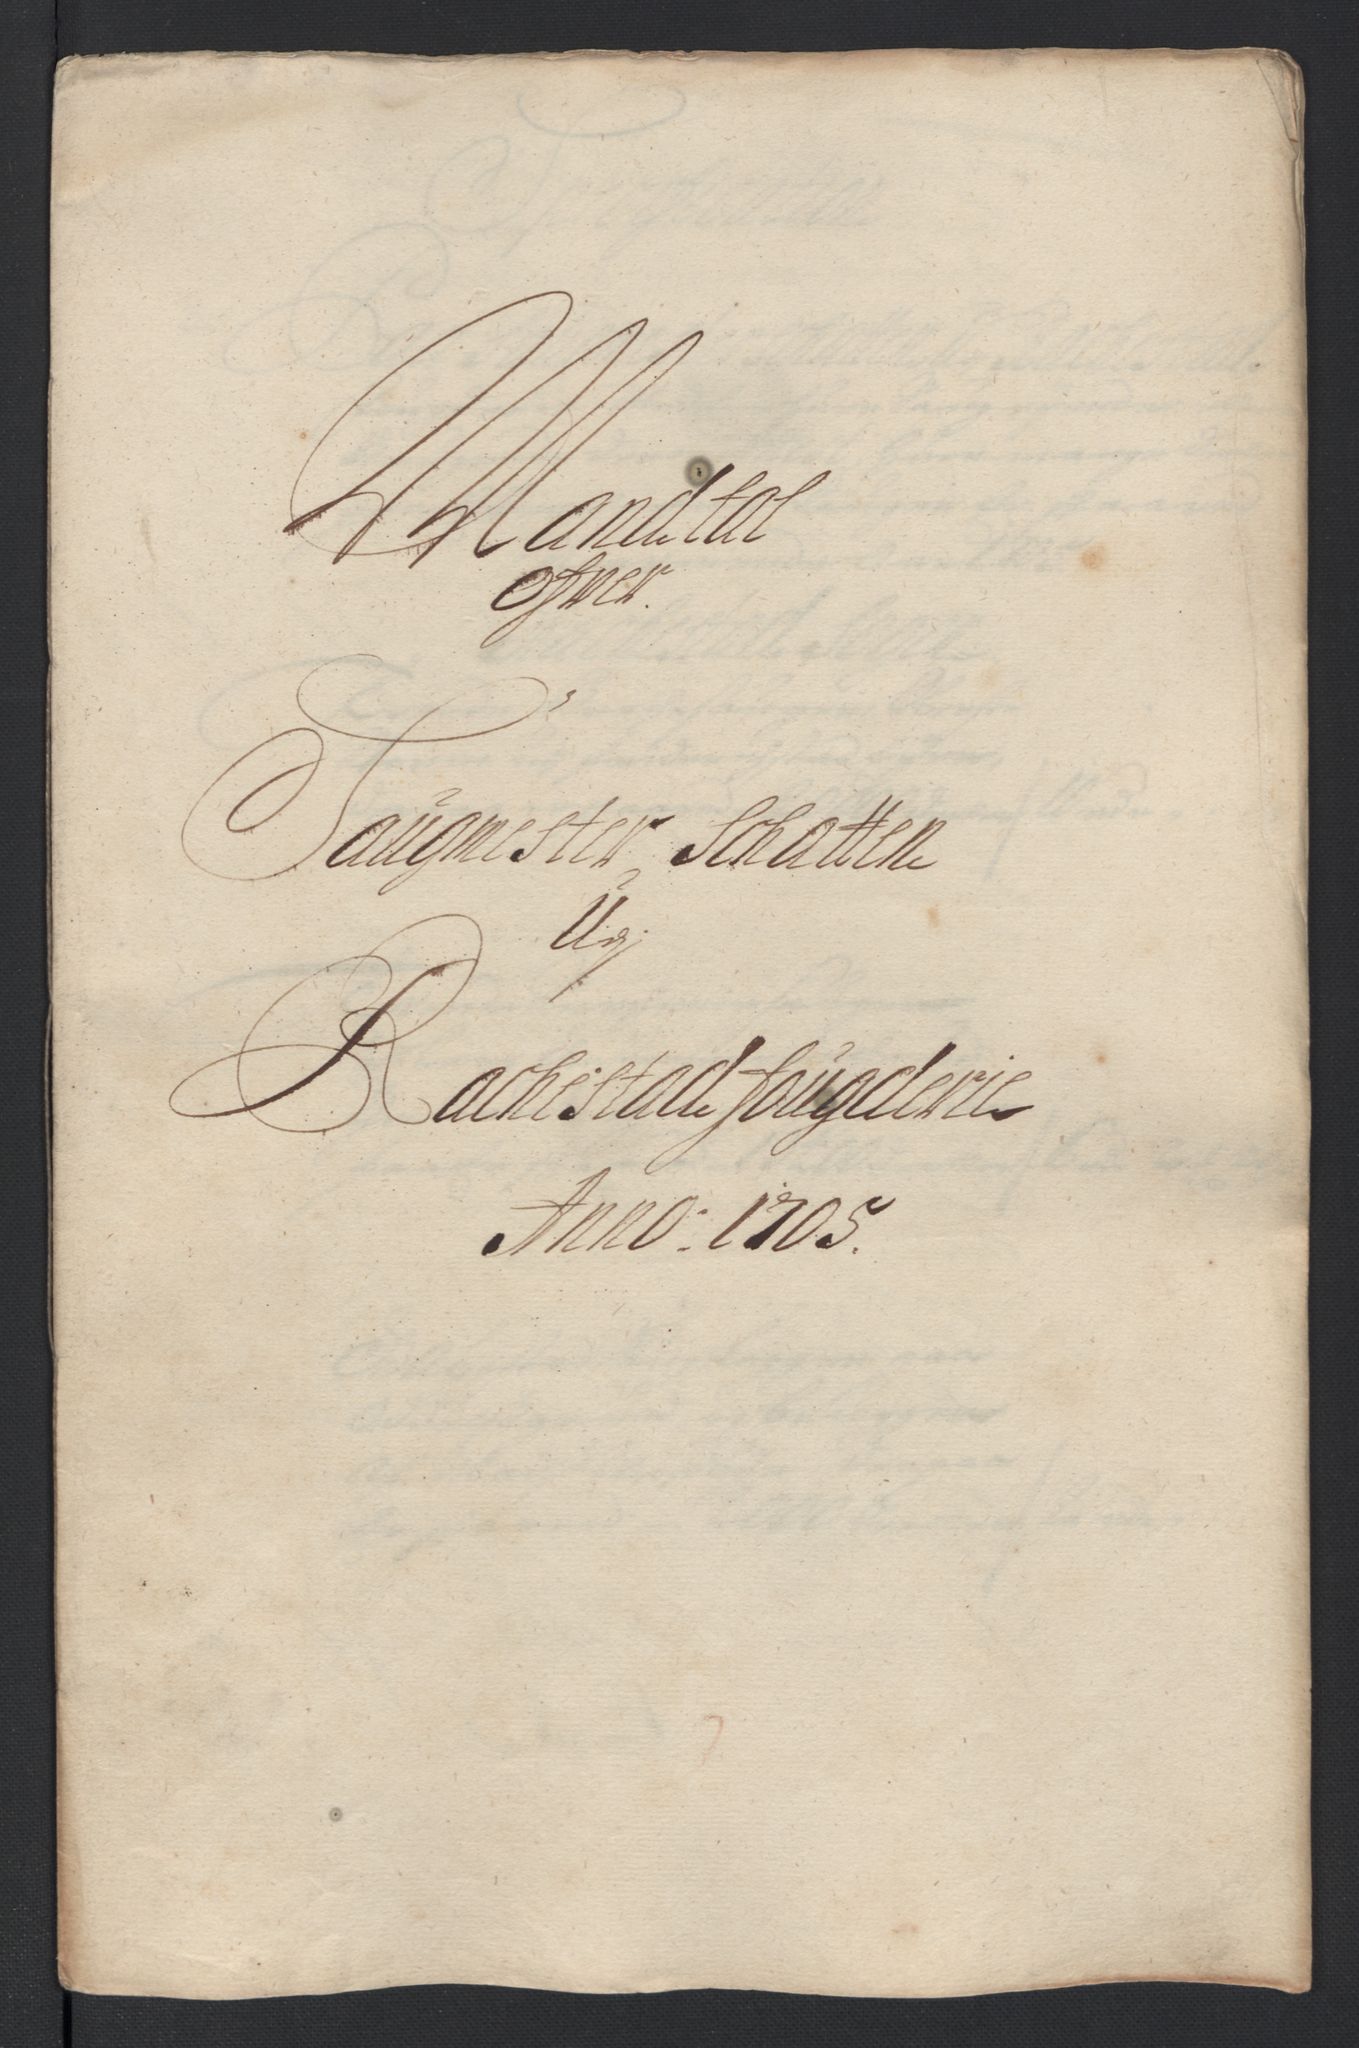 Mandtal
ofwer
Saugmester Schatten
Udj
Rachestad fougderie
Anno: 1705.